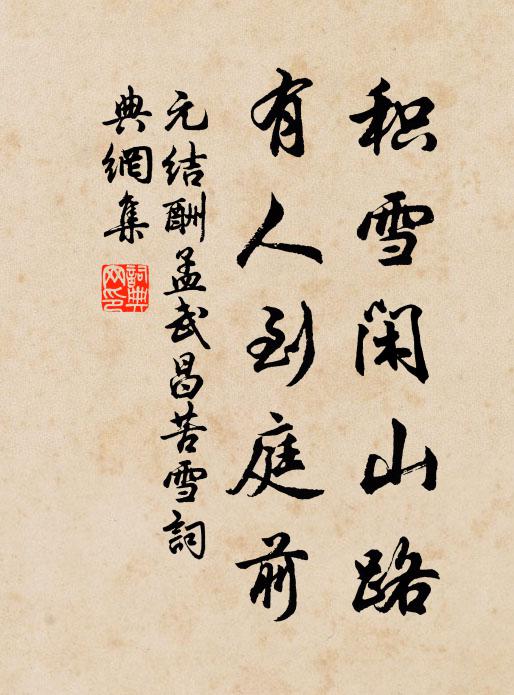 积雪闲山路
有人到庭前
元结酬孟武昌苦雪詞
典網集
詞典
网印